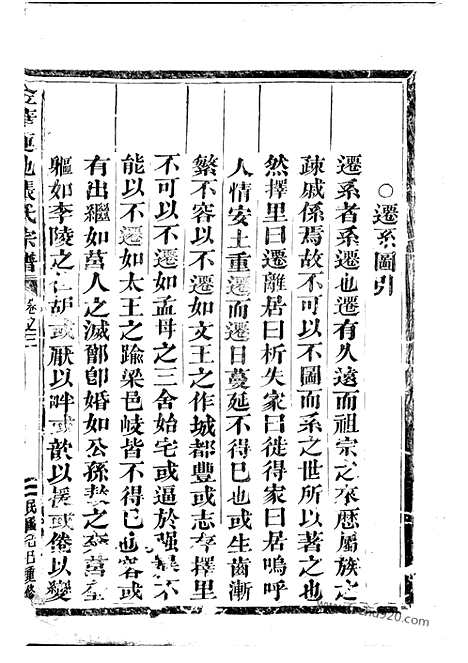 ○遷系圖引
遷系者系遷也遷有久遠而祖宗之來歷屬族之
疎戚係焉故不可以不圖而系之世所以著之也
然擇里曰遷離居曰析失家曰徙得家曰居嗚呼
人情安土重遷而遷日蔓延不得已也或生齒漸
繁不容以不遷如文王之作城都豐或志在擇里
不可以不遷如孟母之三舍始宅或逼於強暴不
能以不遷如太王之踰梁邑岐皆不得已也容或
有出繼如莒人之滅鄫卽婚如公孫敖之奔莒
軀如李陵之胡或厭以畔或歆以援或倦以
金華蓮池張氏宗譜
卷之二
民國
重修